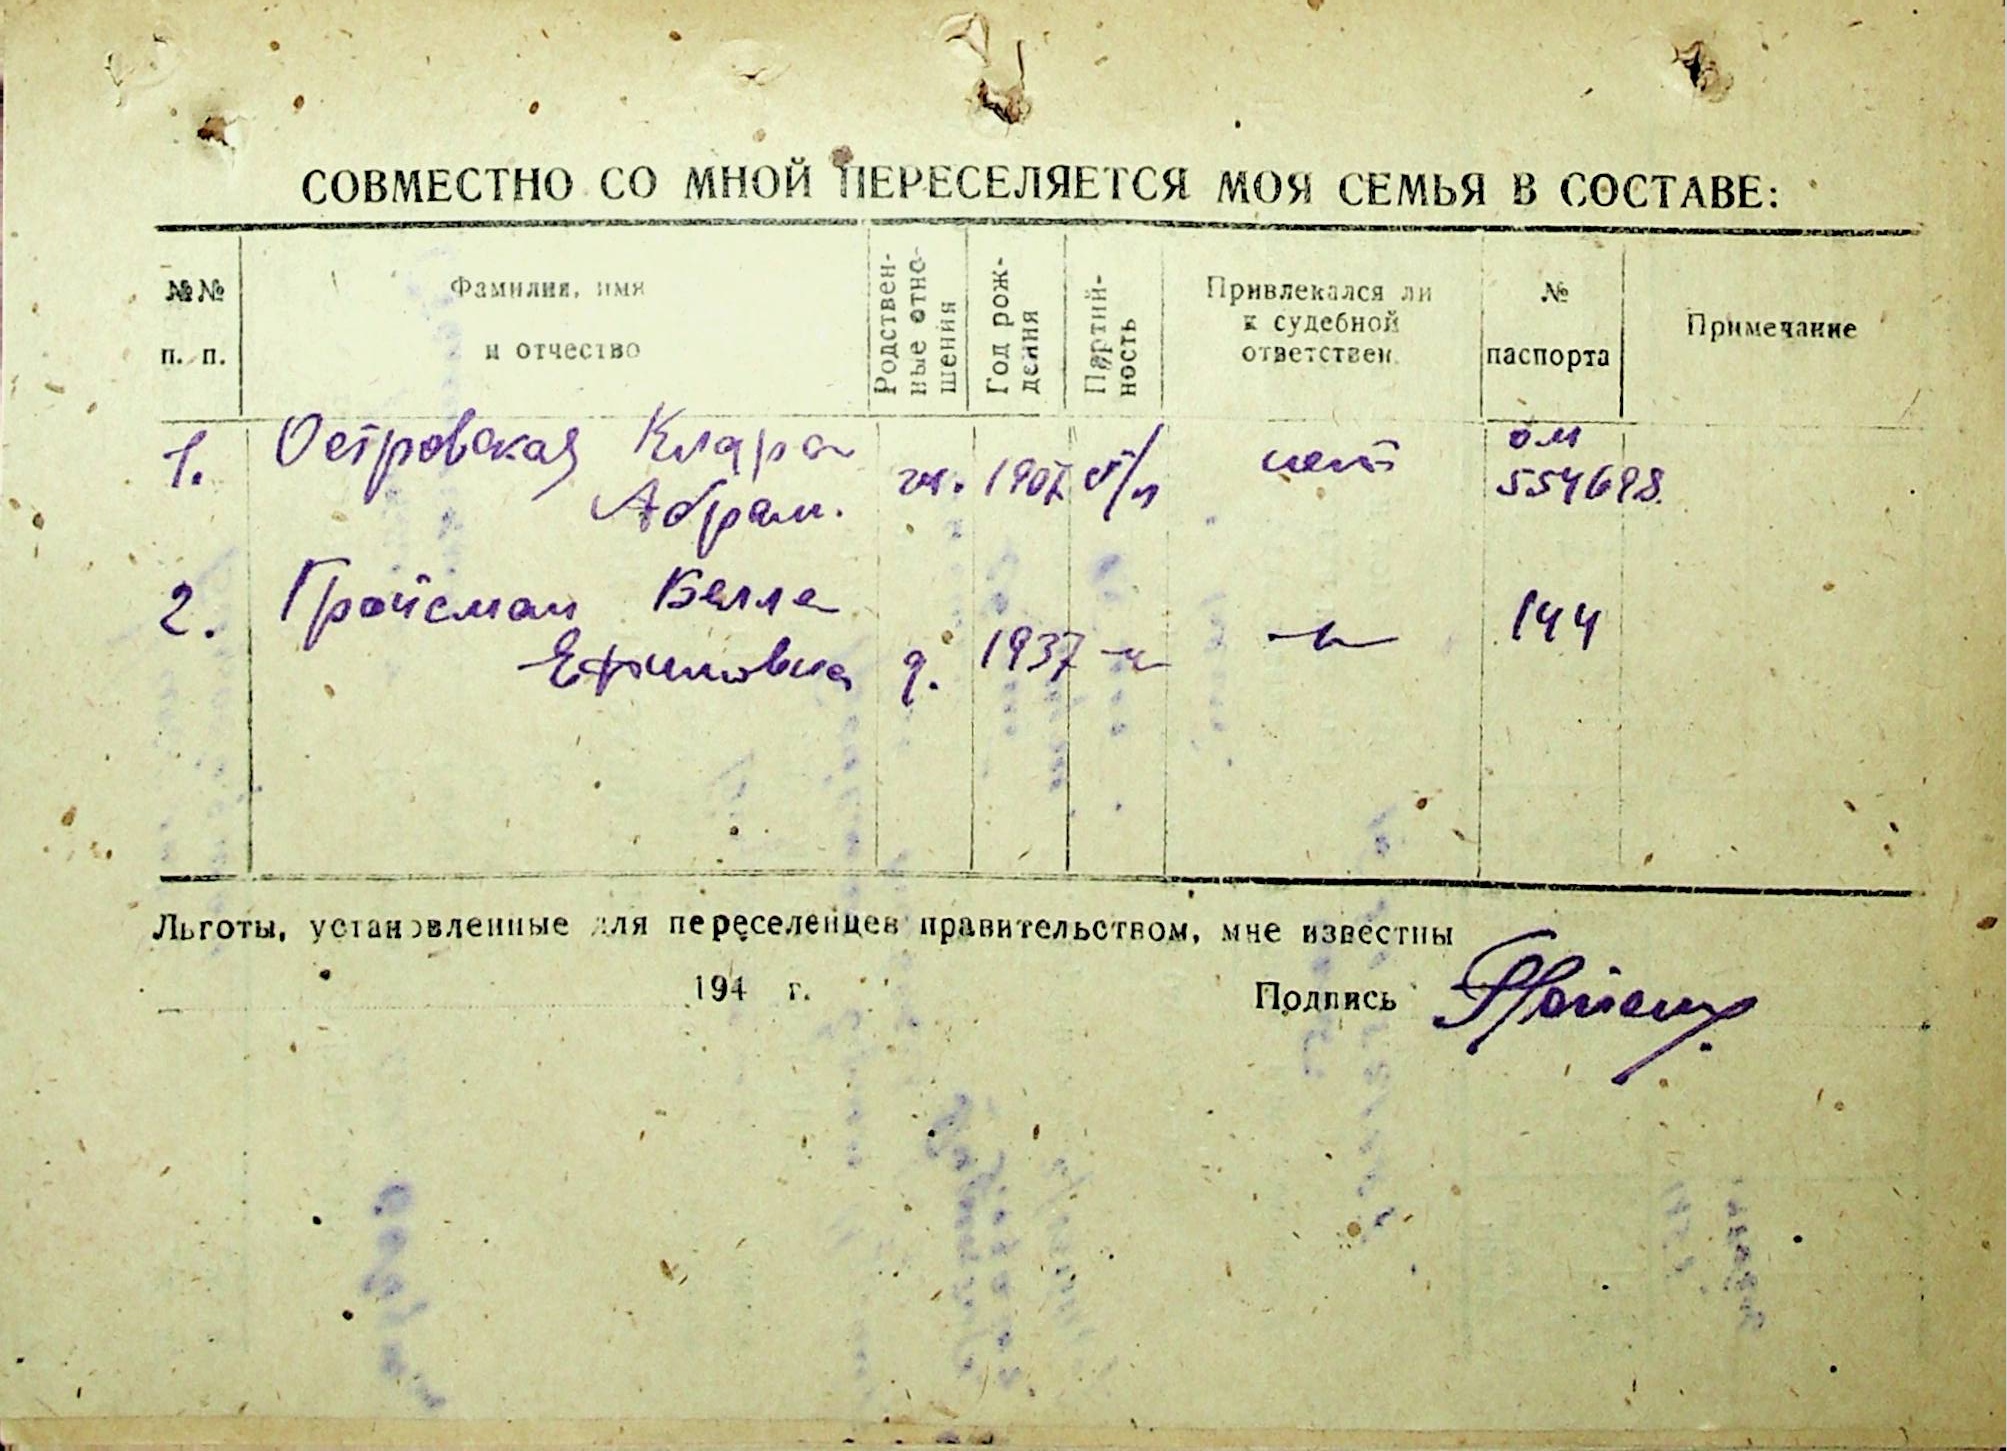 СОВМЕСТНО СО МНОЙ ПЕРЕСЕЛЯЕТСЯ МОЯ СЕМЬЯ В СОСТАВЕ:
№№ п. п.
Фамилия, имя
и отчество
Родствен-
ные отно-
шения
Год рож-
дения
Партий-
ность
Привлекался ли
к судебной
ответствен.
№
паспорта
Примечание
1. Островская Клара
Абрам. ж. 1907 б/п нет
554698.
2. Гройсман Белла
Ефимовна д. 1937 -"- -"- 144
Льготы, установленные для переселенцев правительством, мне известны
194 г. Подпись